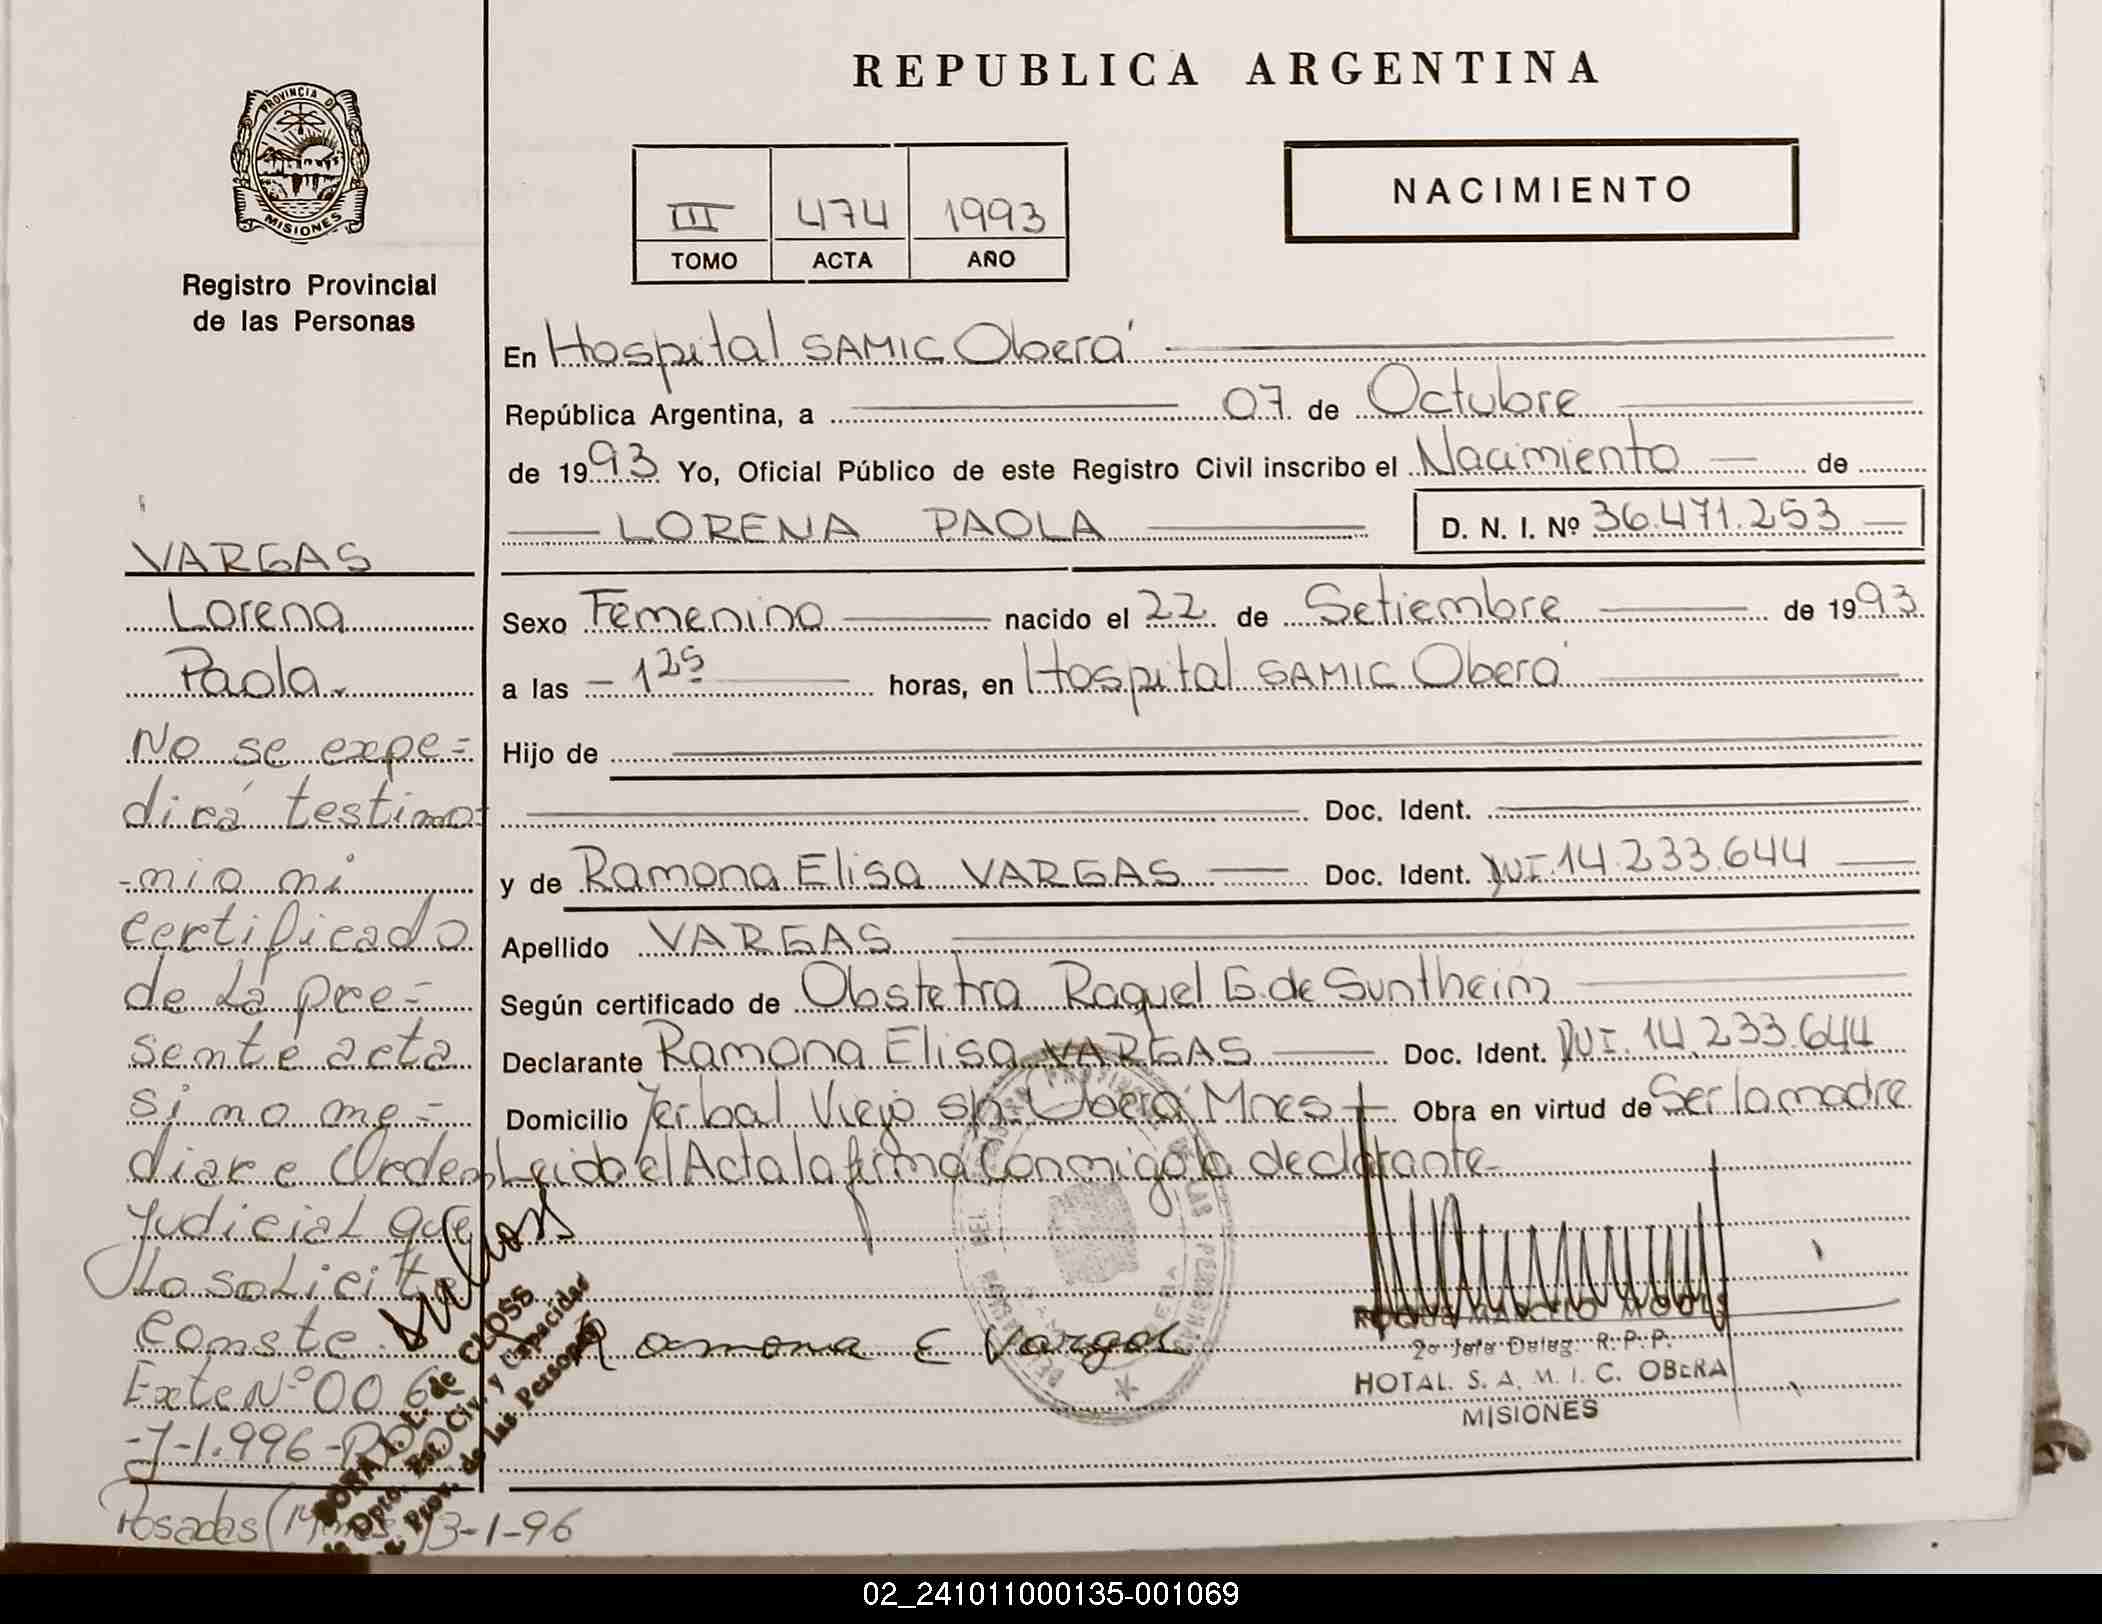 REPUBLICA ARGENTINA
PROVINCIA DE
MISIONES
Registro Provincial
de las Personas
III 474 1993
TOMO ACTA AÑO
NACIMIENTO
En Hospital SAMIC Oberá
República Argentina, a 07 de Octubre
de 1993 Yo, Oficial Público de este Registro Civil inscribo el Nacimiento de
LORENA PAOLA D. N. I. Nº 36.471.253
Sexo Femenino nacido el 22 de Setiembre de 1993
a las horas, en Hospital SAMIC Oberá
Hijo de
Doc. Ident.
y de Ramona Elisa VARGAS Doc. Ident. DNI. 14.233.644
Apellido VARGAS
Según certificado de Obstetra Raquel G. de Suntheim
Declarante Ramona Elisa VARGAS Doc. Ident. DNI. 14.233.644
Domicilio Yerbal Viejo s/n. Oberá Mnes Obra en virtud de Ser la madre
Leido el Acta la firma Conmigo la declarante
Ramona E Vargas
ROQUE MARCELO
2º Jefe Deleg. R.P.P.
HOTAL. S. A. M. I. C. OBERA
MISIONES
VARGAS
Lorena
Paola
No se expe=
dirá testimo=
-nio ni
certificado
de la pre=
sente acta
si no me=
diare Orden
Judicial que
lo solicite
Conste.
Exte Nº 006
-J-1.996-
Posadas ( 3-1-96
de CLOSS
Dpto. Est. Civ. y Capacidad
Prov. de las Personas
02_241011000135-001069